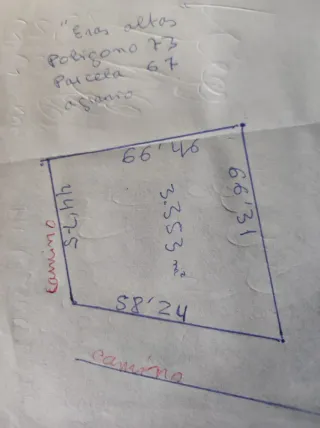 "Eras altas
Polígono 73
Parcela 67
agrario
66,31
3.353 m²
44,75
camino
58,24
camino